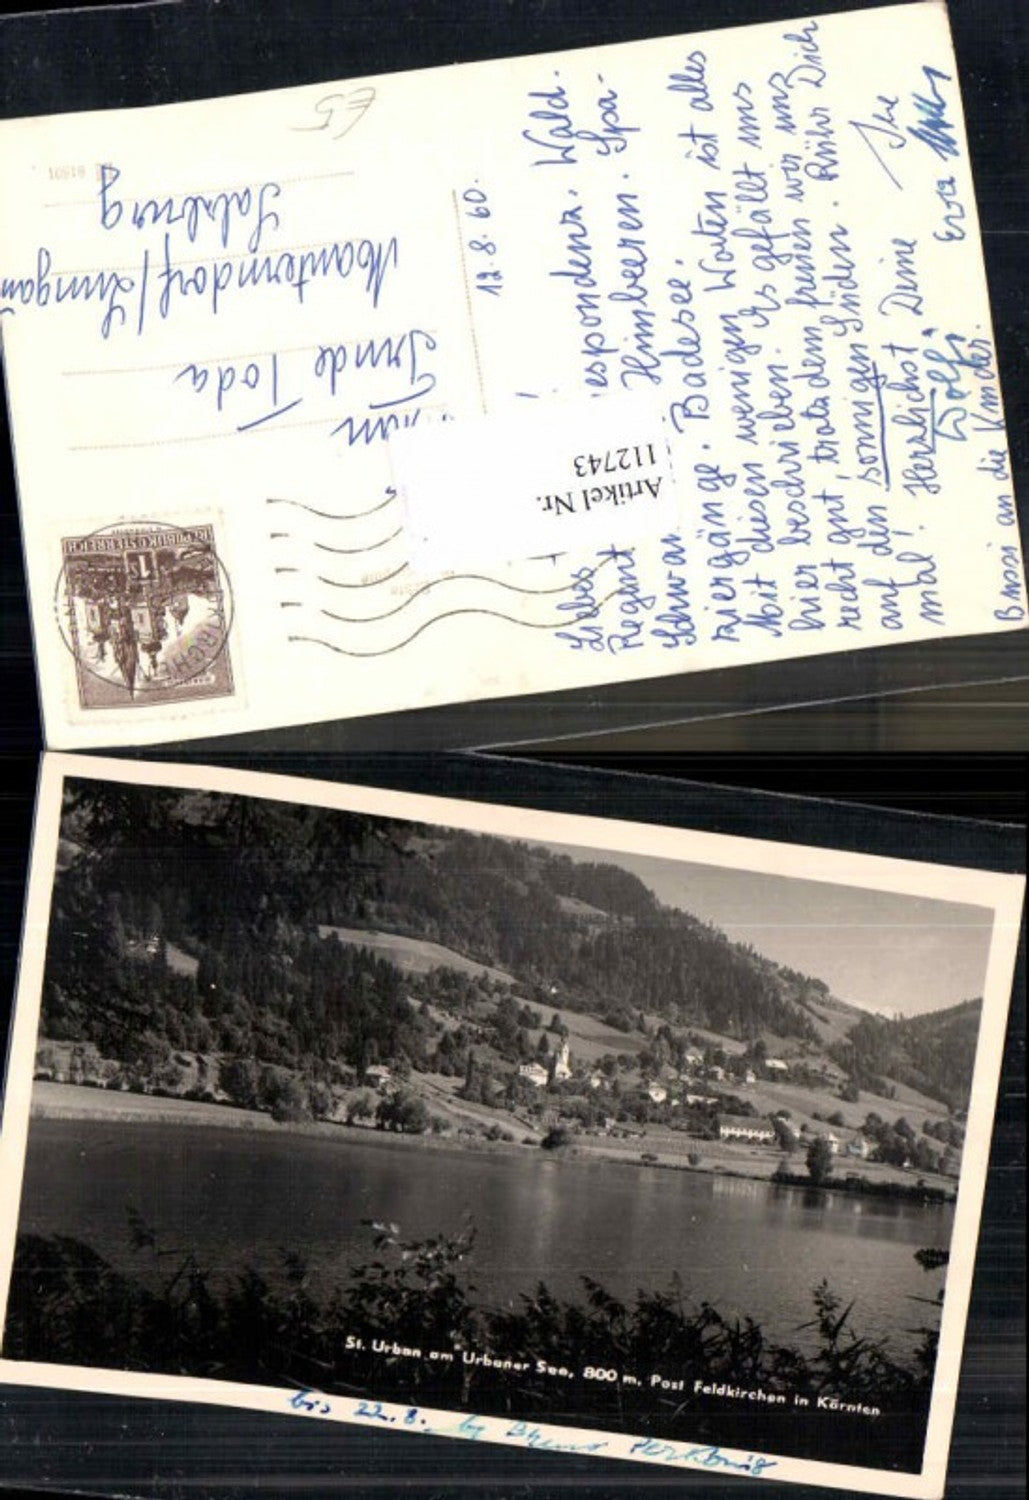 12. 8. 60.
Liebes espondenz. Wald.
Regent Himbeeren. Spa-
Schwar Badesee.
ziergänge. Badesee.
Mit diesen wenigen Worten ist alles
hier beschrieben. Es gefällt uns
recht gut, trotzdem freuen wir uns
auf den sonnigen Süden. Rühr Dich
mal! Herzlichst Deine Ihr
Wolfi Erva
Bussi an die Kinder.
Frau
Trude Toda
Mauterndorf/Lungau
Salzburg
REPUBLIK ÖSTERREICH
1
Artikel Nr.
112743
St. Urban am Urbaner See, 800 m, Post Feldkirchen in Kärnten
bis 22. 8.